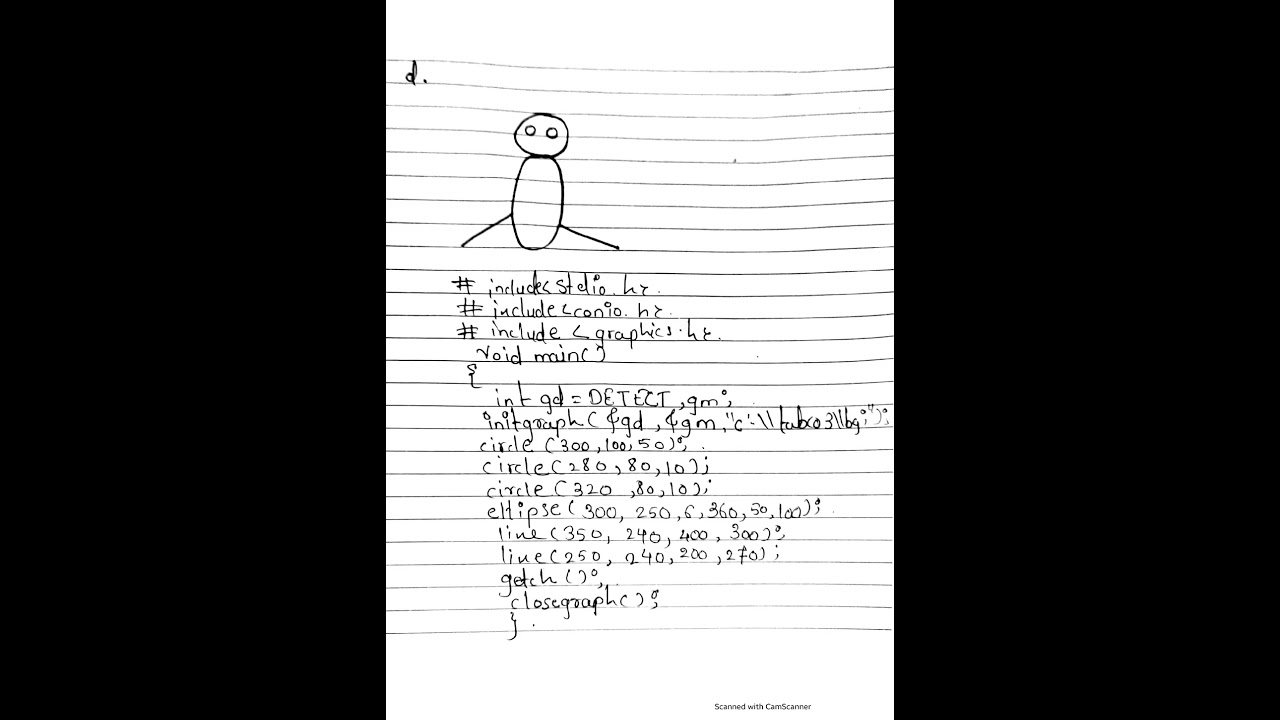 d.
# include<stdio.h>.
# include<conio.h>.
# include <graphics.h>.
void main()
{
int gd = DETECT,gm;
initgraph(&gd,&gm,"c:\\turboc3\\bgi");
circle (300,100,50);
circle(280,80,10);
circle(320,80,10);
ellipse(300, 250, 6, 360, 50, 100);
line(350, 240, 400, 300);
line(250, 240, 200, 270);
getch();
closegraph();
}
Scanned with CamScanner